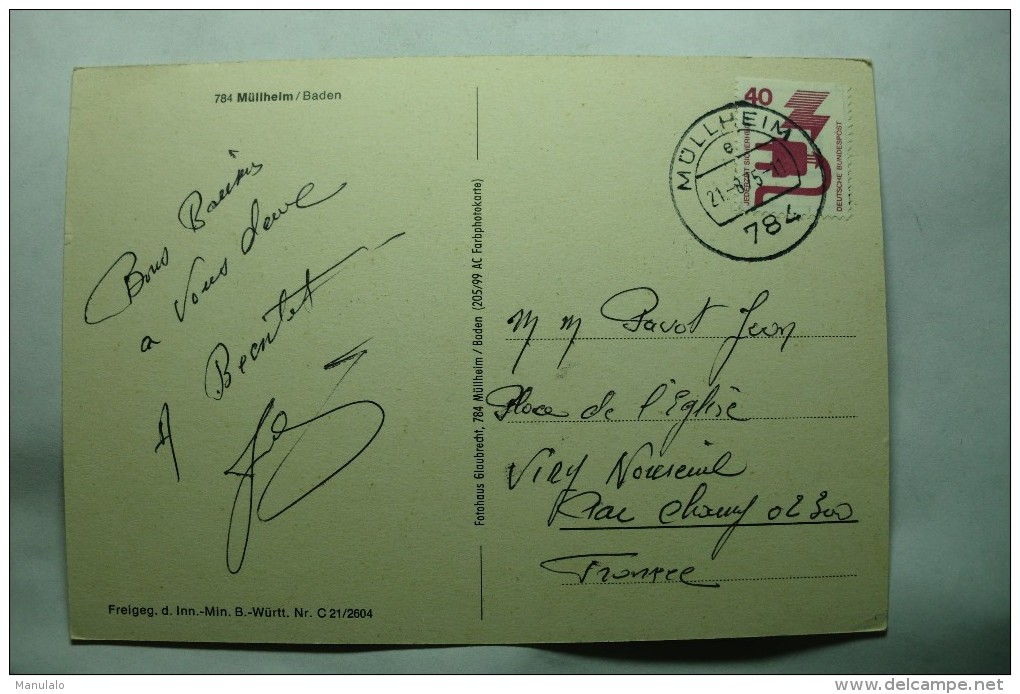 784 Müllheim/Baden
Bons Baisers
a Vous deux
A Bientot
Fotohaus Glaubrecht, 784 Müllheim / Baden (205/99 AC Farbphotokarte)
40
JEDERZEIT SICHERHEIT
DEUTSCHE BUNDESPOST
MÜLLHEIM
e
21.-8.75-11
784
M M Pavot Jean
Place de l'Eglise
Viry Noureuil
Par Chauny 02300
France
Freigeg. d. Inn.-Min. B.-Württ. Nr. C 21/2604
Manulalo
delcampe.net